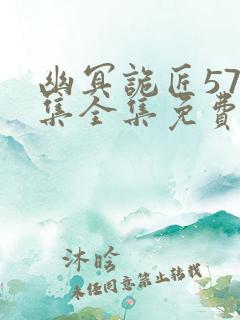 幽冥詭匠57
集全集免費
沐晗
未经同意禁止转载